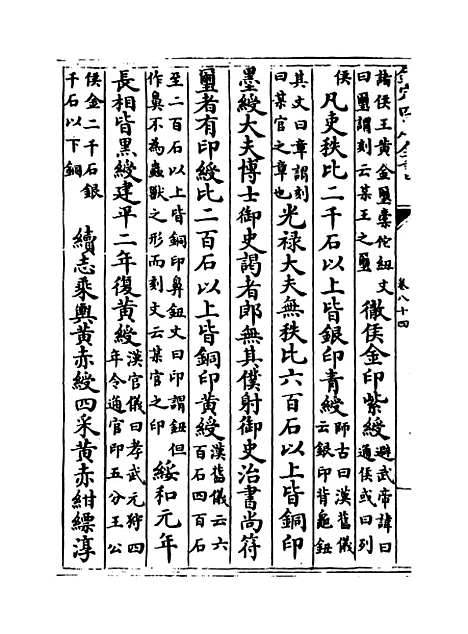 卷八十四
諸侯王黄金璽橐佗紐文
曰璽謂刻云某王之璽
徹侯金印紫綬
避武帝諱曰
通侯或曰列
侯
凡吏秩比二千石以上皆銀印青綬
師古曰漢舊儀
云銀印背龜鈕
其文曰章謂刻
曰某官之章也
光禄大夫無秩比六百石以上皆銅印
墨綬大夫博士御史謁者郎無其僕射御史治書尚符
璽者有印綬比二百石以上皆銅印黄綬
漢舊儀云六
百石四百石
至二百石以上皆銅印鼻鈕文曰印謂鈕但
作鼻不為蟲獸之形而刻文云某官之印
綏和元年
長相皆黒綬建平二年復黄綬
漢官儀曰孝武元狩四
年令通官印五分王公
侯金二千石銀
千石以下銅
續志乘輿黄赤綬四采黄赤紺縹淳